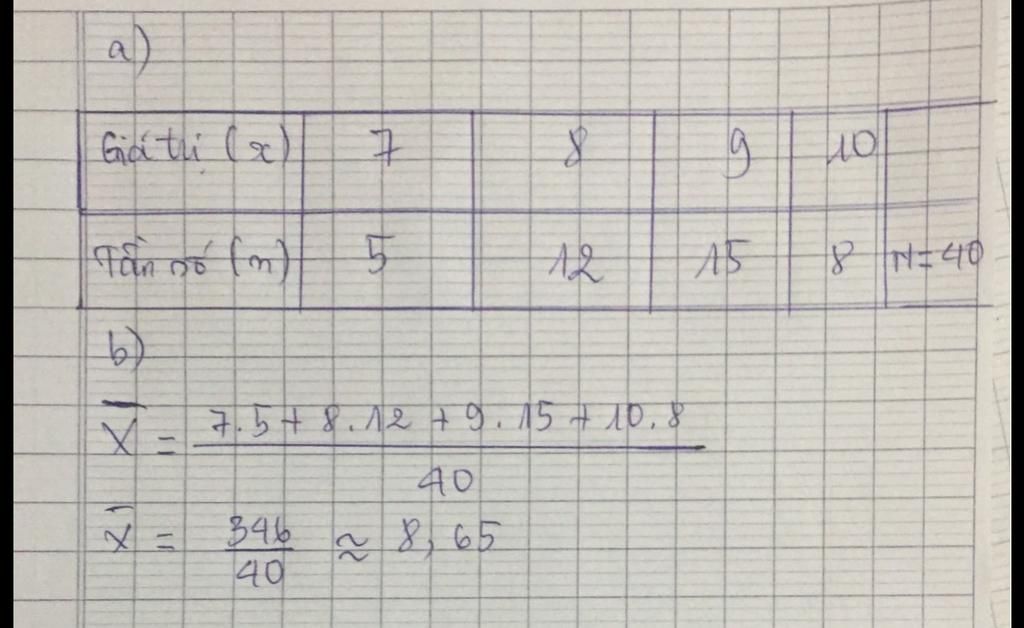 a)
Giá trị (x) 7 8 9 10
Tần số (n) 5 12 15 8 N=40
b)
X̅ = 7.5 + 8.12 + 9.15 + 10.8 / 40
X̅ = 346/40 ≈ 8,65